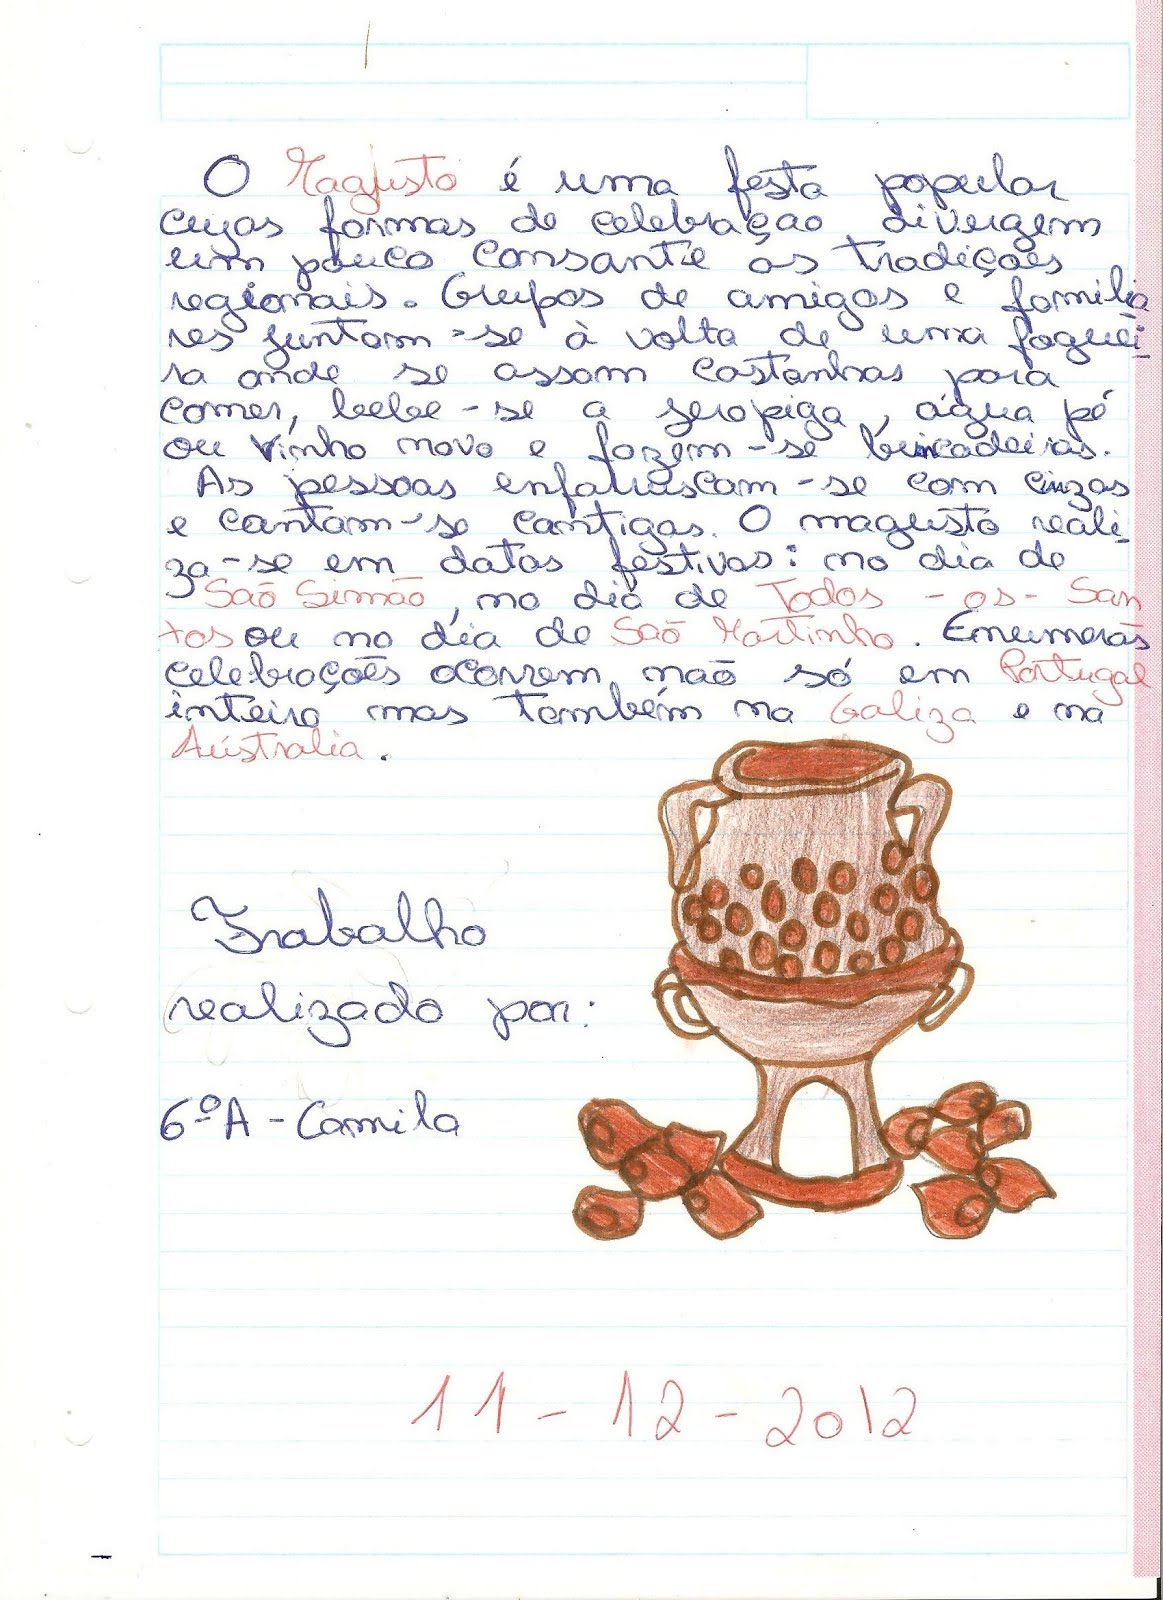 O Magusto é uma festa popular
cujas formas de celebração divergem
um pouco consante as tradições
regionais. Grupos de amigos e familia
res juntam-se à volta de uma foguei
ra onde se assam castanhas para
comer, bebe-se a jeropiga, água pé
ou vinho novo e fazem-se brincadeiras.
As pessoas enfaruscam-se com cinzas
e cantam-se cantigas. O magusto reali
za-se em datas festivas: no dia de
São Simão, no dia de Todos-os-San
tos ou no dia de São Martinho. Enumeras
celebrações ocorrem não só em Portugal
inteiro mas também na Galiza e na
Austrália.
Trabalho
realizado por:
6ºA - Camila
11-12-2012